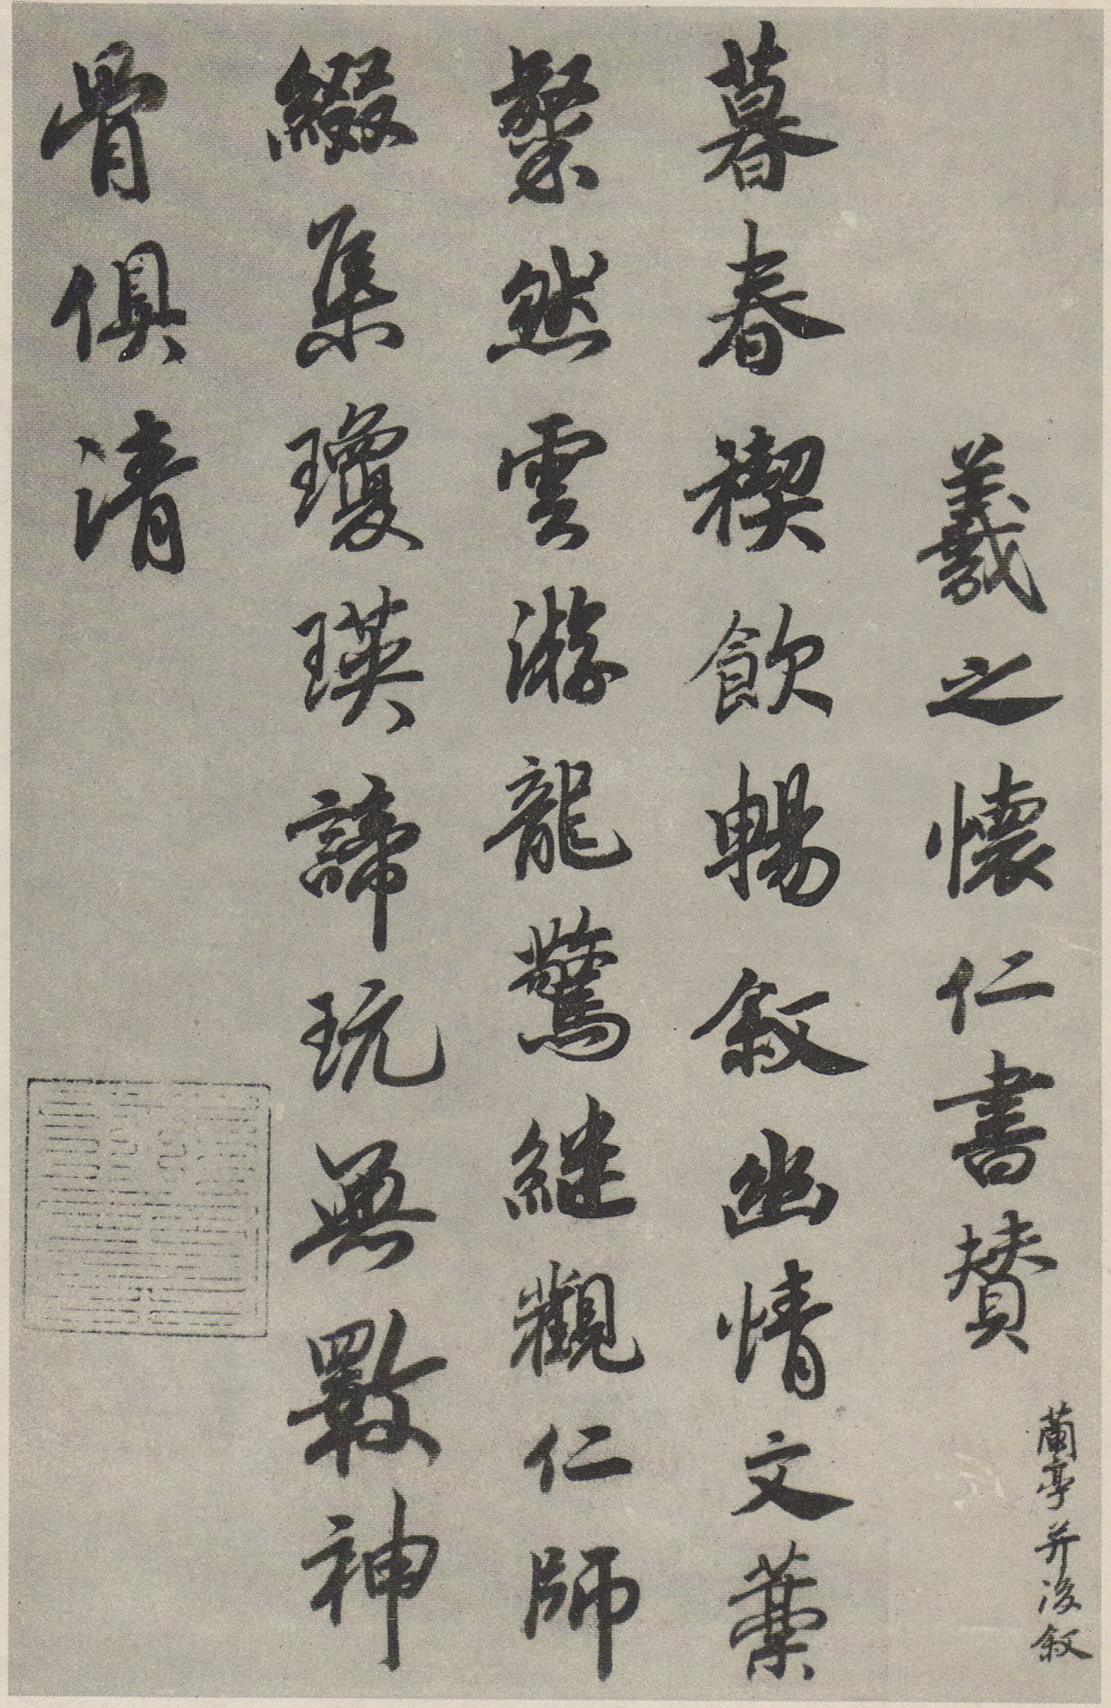 羲之懷仁書贊
蘭亭并後敘
暮春禊飲暢敘幽情文藻
粲然雲游龍驚繼觀仁師
綴集瓊瑛諦玩無斁神
骨俱清